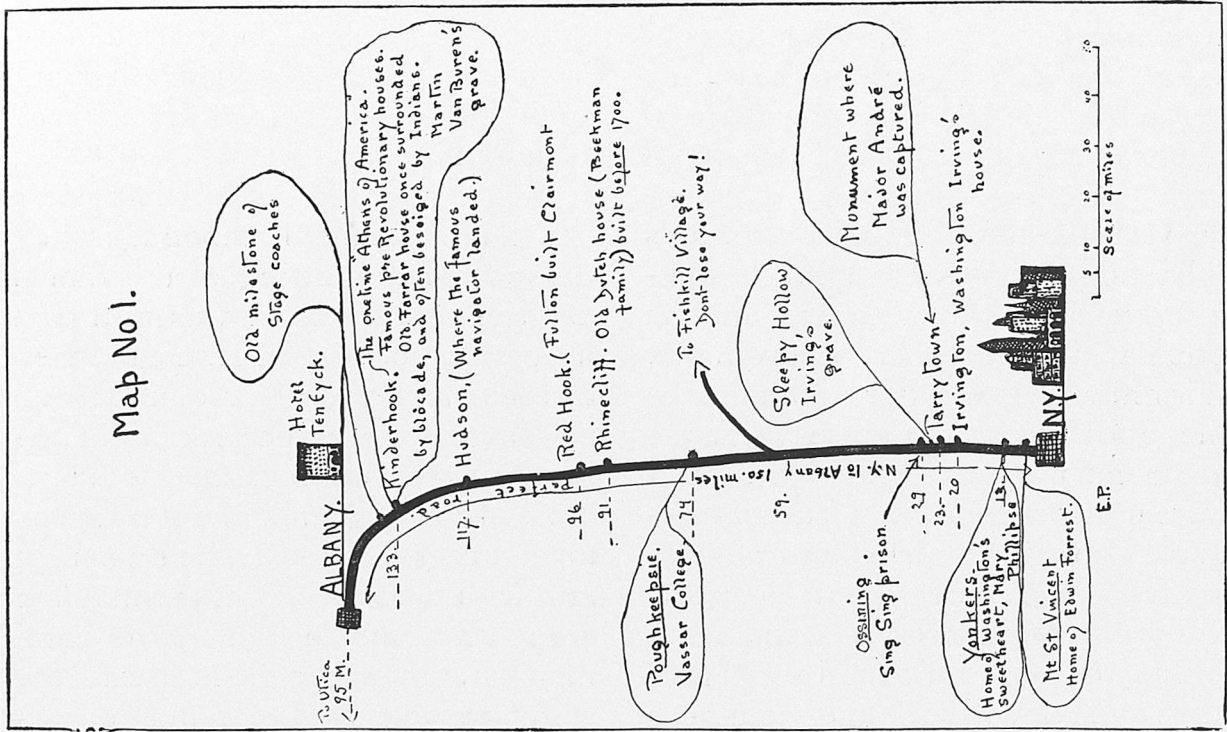 Map No 1.
Old milestone of
Stage coaches
Hotel
TenEyck.
ALBANY.
To Utica
95 M.
The onetime "Athens of America.
Kinderhook. Famous pre Revolutionary houses.
Old Farrar house once surrounded
by blocade, and often besieged by Indians.
Martin
Van Buren's
grave.
133
Hudson, (Where the famous
navigator landed.)
117
perfect
road
Red Hook. (Fulton built Clairmont
96
Rhinecliff. Old Dutch house (Beekman
family) built before 1700.
91
Poughkeepsie.
Vassar College
74
To Fishkill Village.
Dont lose your way!
59.
N.Y. to Albany 150. miles
Sleepy Hollow
Irving's
grave.
Monument where
Major André
was captured.
Ossining.
Sing Sing prison.
29
Tarrytown
23.
Irvington, Washington Irving's
house.
20
Yonkers.
Home of Washington's
sweetheart, Mary
Phillipse
13
Mt St Vincent
Home of Edwin Forrest.
N.Y.
E.P.
5 10 20 30 40 50
Scale of miles